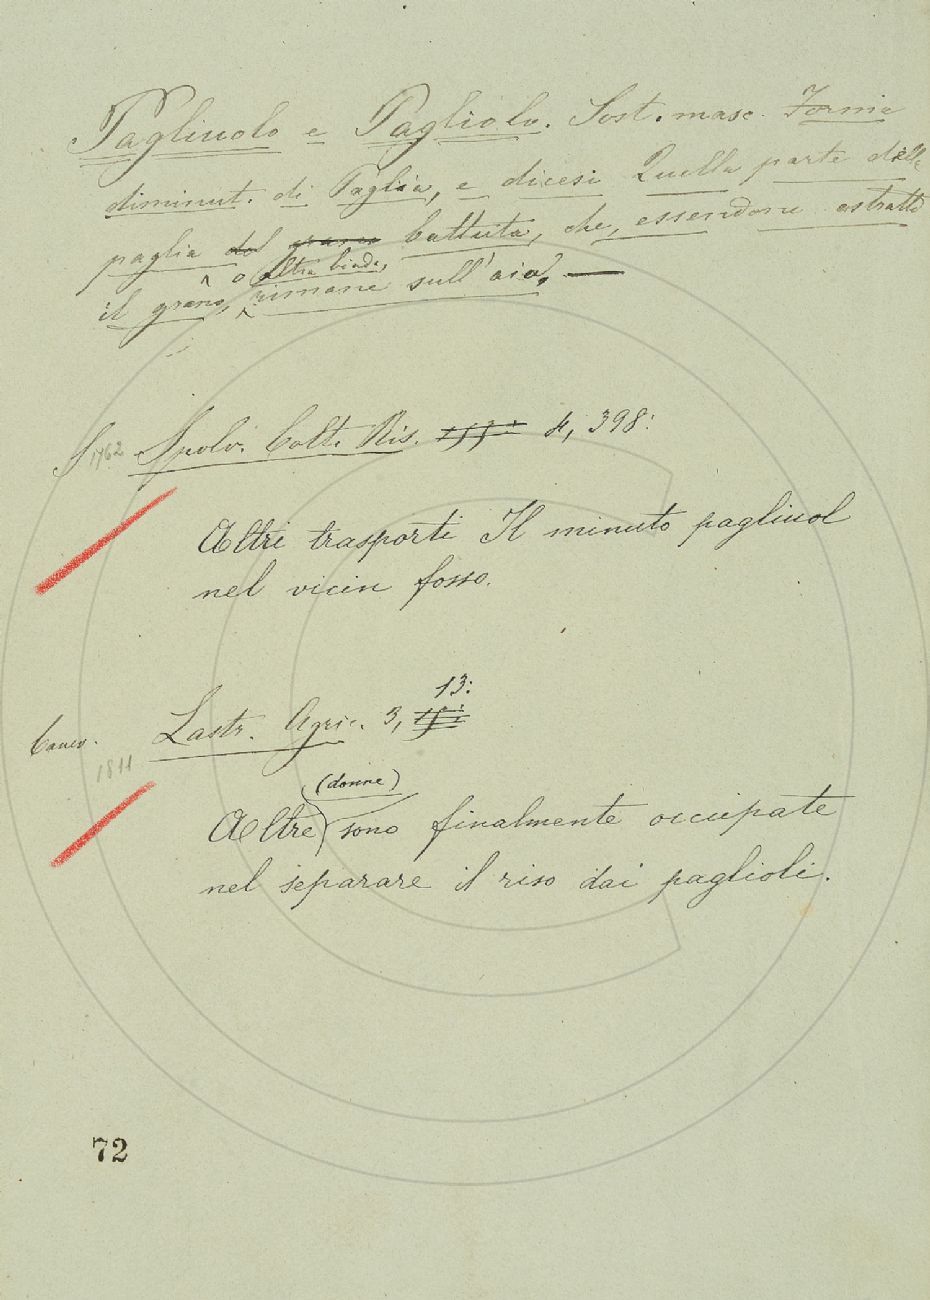 Pagliuolo e Pagliolo. Sost. masc. Forma
diminut. di Paglia, e dicesi Quella parte della
paglia del grano battuta, che, essendone estratto
o altra biada,
il grano, rimane sull'aia. —
S. 1762 Spolv. Colt. Ris. 4, 398:
Altri trasporti Il minuto pagliuol
nel vicin fosso.
13:
Lastr. Agric. 3,
1811
(donne)
Altre sono finalmente occupate
nel separare il riso dai paglioli.
72